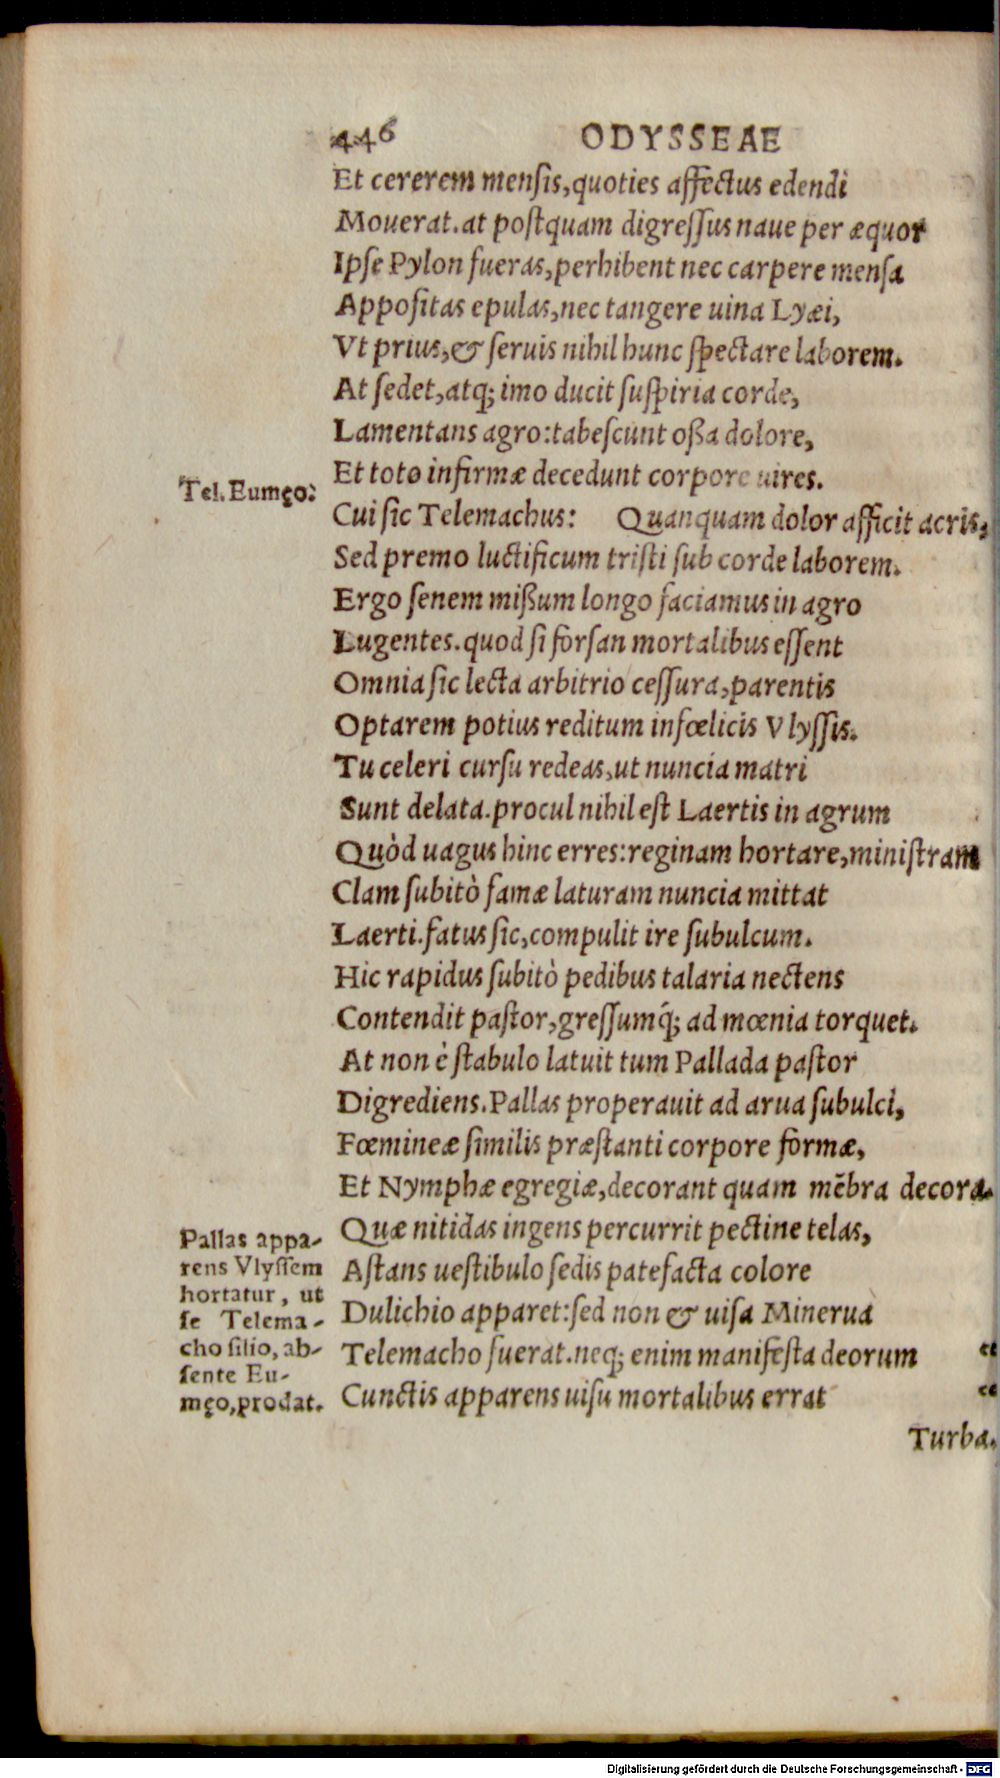 446 ODYSSEAE
Et cererem menſis, quoties affectus edendi
Mouerat. at poſtquam digreſſus naue per æquor
Ipſe Pylon fueras, perhibent nec carpere menſa
Appoſitas epulas, nec tangere uina Lyæi,
Vt prius, & ſeruis nihil hunc ſpectare laborem.
At ſedet, atq; imo ducit ſuſpiria corde,
Lamentans agro: tabeſcunt oßa dolore,
Et toto infirmæ decedunt corpore uires.
Tel. Eumęo:
Cui ſic Telemachus: Quanquam dolor afficit acris,
Sed premo luctificum triſti ſub corde laborem.
Ergo ſenem mißum longo faciamus in agro
Lugentes. quod ſi forſan mortalibus eſſent
Omnia ſic lecta arbitrio ceſſura, parentis
Optarem potius reditum infœlicis Vlyſſis.
Tu celeri curſu redeas, ut nuncia matri
Sunt delata. procul nihil eſt Laertis in agrum
Quòd uagus hinc erres: reginam hortare, miniſtram
Clam ſubitò famæ laturam nuncia mittat
Laerti. fatus ſic, compulit ire ſubulcum.
Hic rapidus ſubitò pedibus talaria nectens
Contendit paſtor, greſſumq́; ad mœnia torquet.
At non è ſtabulo latuit tum Pallada paſtor
Digrediens. Pallas properauit ad arua ſubulci,
Fœmineæ ſimilis præſtanti corpore formæ,
Et Nymphæ egregiæ, decorant quam mẽbra decora.
Quæ nitidas ingens percurrit pectine telas,
Aſtans ueſtibulo ſedis patefacta colore
Dulichio apparet: ſed non & uiſa Minerua
Telemacho fuerat. neq; enim manifeſta deorum “
Cunctis apparens uiſu mortalibus errat “
Pallas appa-
rens Vlyſſem
hortatur, ut
ſe Telema-
cho filio, ab-
ſente Eu-
męo, prodat.
Turba.
Digitalisierung gefördert durch die Deutsche Forschungsgemeinschaft - DFG